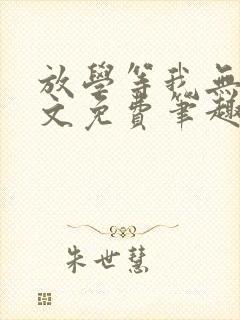 放學等我無
文免費筆趣
朱世慧